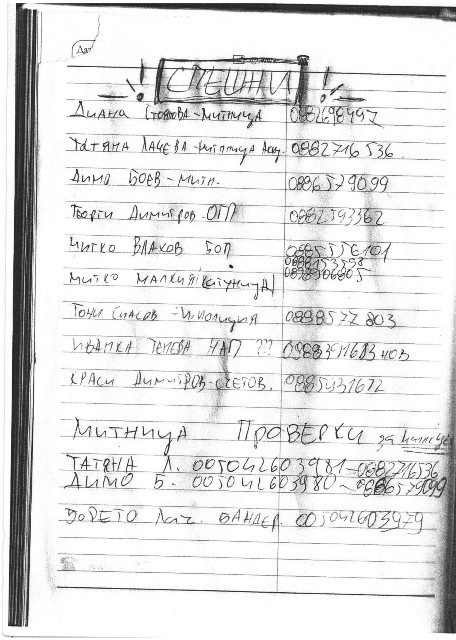 Дат
! СПЕШНИ !
ДИАНА СТОЯНОВА-МИТНИЦА 0882698497
ТАТЯНА ЛАЧЕВА-МИТНИЦА 0882716536
ДИМО БОЕВ-МИТН. 0886579099
ГЕОРГИ ДИМИТРОВ. ОГП 0882593362
МИТКО ВЛАХОВ БОП 0885556101
0888153598
МИТКО МАЛКИЯ (КАТУНИЦА) 0898906805
ТОНИ СПАСОВ - ПОЛИЦИЯ 0888577803
ИВАНКА ТЕНЕВА НАП ?? НОВ
КРАСИ ДИМИТРОВ-СЧЕТОВ. 0885431672
МИТНИЦА ПРОВЕРКИ за
ТАТЯНА Л. 005042603981-0882716536
ДИМО Б. 005042603980-0886579099
БОРЕТО БАНДЕР. 005042603979